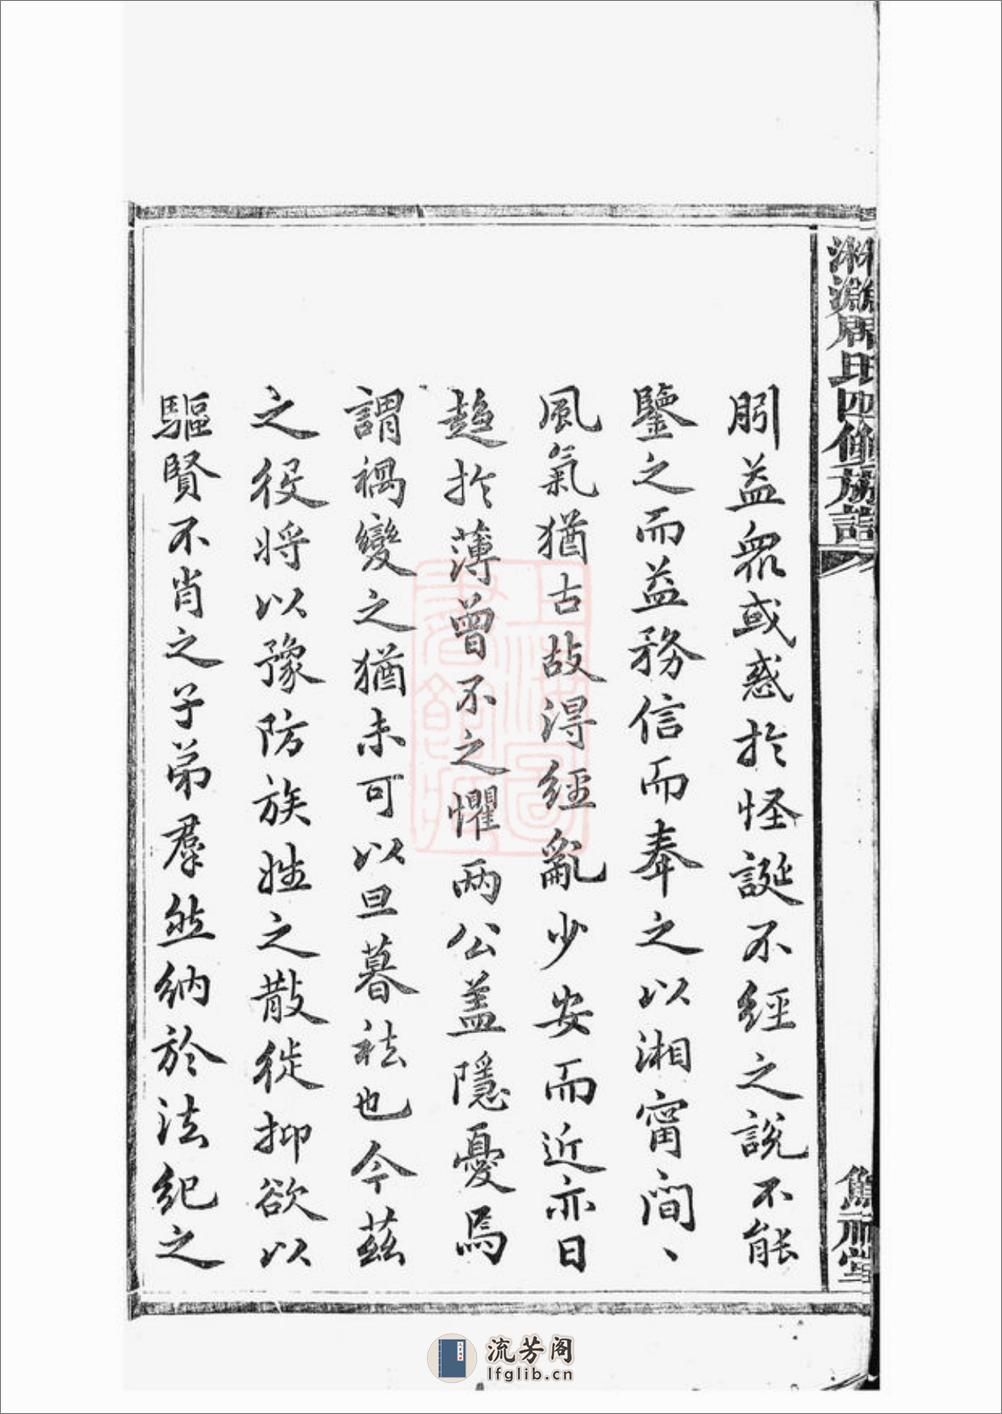 周氏四修族譜
矧益衆或惑於怪誕不經之説不能
鑒之而益務信而奉之以湘甯間、
風氣猶古故得經亂少安而近亦日
趨於薄曾不之懼兩公蓋隱憂焉
謂禍變之猶未可以旦暮袪也今茲
之役將以豫防族姓之散徙抑欲以
驅賢不肖之子弟羣然納於法紀之
流芳阁
lfglib.cn